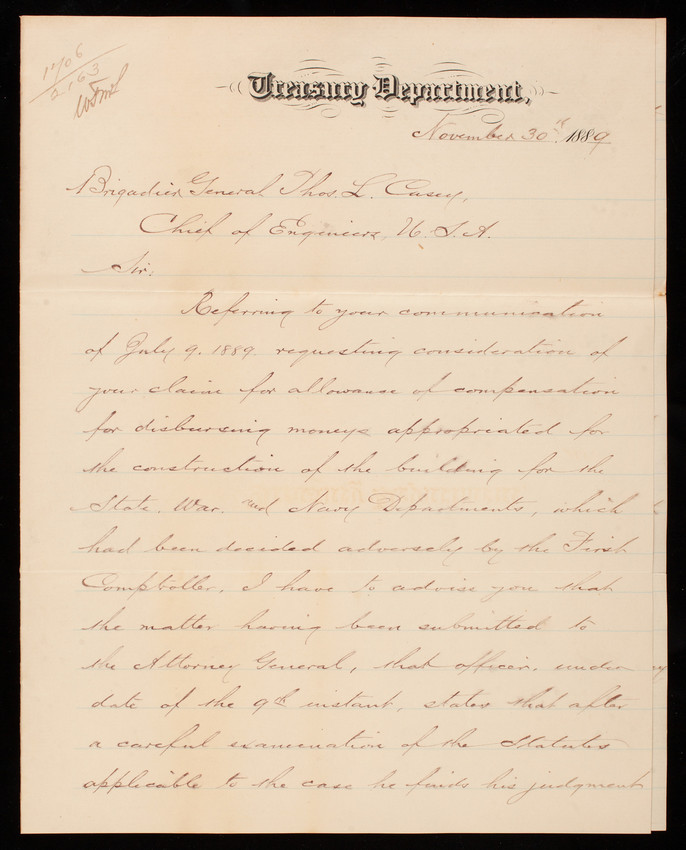 1706
2163
Treasury Department,
November 30th, 1889
Brigadier General Thos. L. Casey,
Chief of Engineers, U. S. A.
Sir:
Referring to your communication
of July 9, 1889 requesting consideration of
your claim for allowance of compensation
for disbursing moneys appropriated for
the construction of the building for the
State, War, and Navy Departments, which
had been decided adversely by the First
Comptroller, I have to advise you that
the matter having been submitted to
the Attorney General, that officer, under
date of the 9th instant, states that after
a careful examination of the Statutes
applicable to the case he finds his judgment